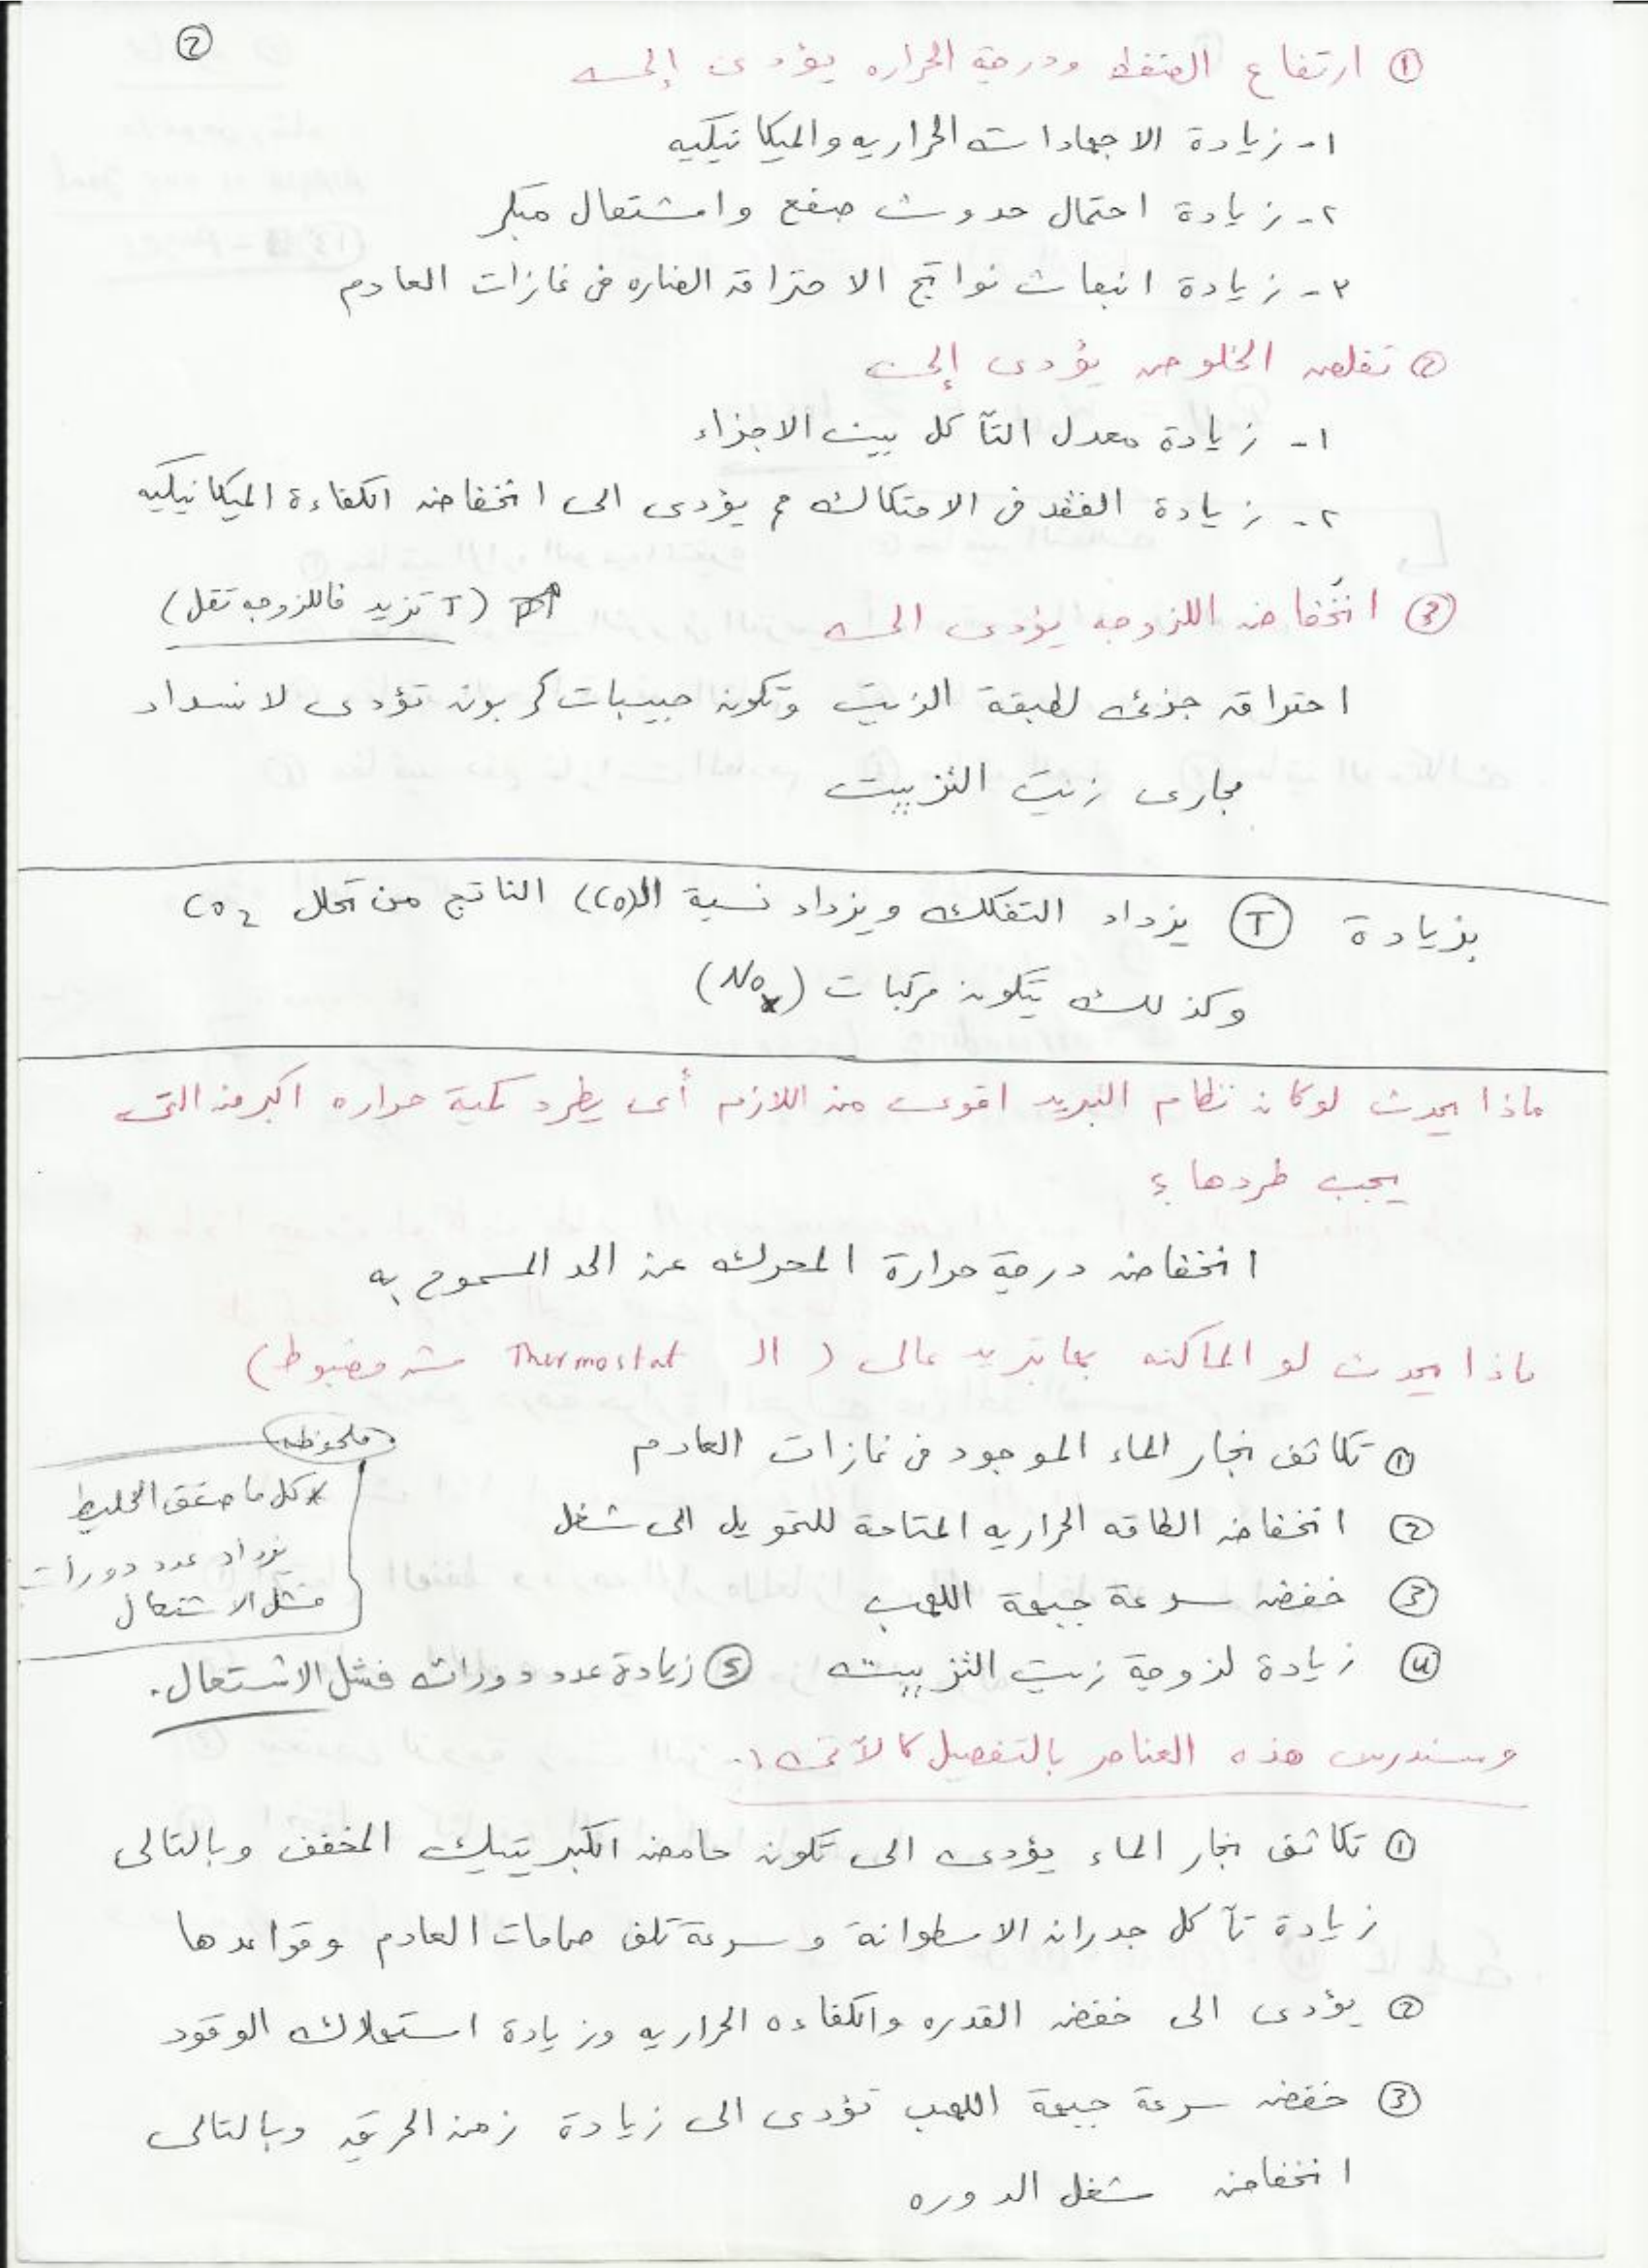 ②
① ارتفاع الضغط ودرجة الحراره يؤدى إلى
١- زيادة الاجهادات الحراريه والميكانيكيه
٢- زيادة احتمال حدوث صفع واشتعال مبكر
٣- زيادة انبعاث نواتج الاحتراق الضاره فى غازات العادم
② تقلص الخلوص يؤدى إلى
١- زيادة معدل التآكل بين الاجزاء
٢- زيادة الفقد فى الاحتكاك مم يؤدى الى انخفاض الكفاءة الميكانيكيه
③ انخفاض اللزوجه يؤدى الى (T تزيد فاللزوجه تقل)
احتراق جزئى لطبقة الزيت وتكون حبيبات كربون تؤدى لانسداد
مجارى زيت التزييت
بزيادة T يزداد التفكك ويزداد نسبة الـ (CO) الناتج من تحلل CO2
وكذلك يتكون مركبات (NOx)
ماذا يحدث لو كان نظام التبريد اقوى من اللازم أى يطرد كمية حراره اكبر من التى
يجب طردها ؟
انخفاض درجة حرارة المحرك عن الحد المسموح به
ماذا يحدث لو الماكنه بها تبريد عالى ( الـ Thermostat مش مضبوط)
① تكاثف بخار الماء الموجود فى غازات العادم
② انخفاض الطاقه الحراريه المتاحة للتحويل الى شغل
③ خفض سرعة جبهة اللهب
④ زيادة لزوجة زيت التزييت ⑤ زيادة عدد دورات فشل الاشتعال.
ملحوظه
* كل ما ضعف الخليط
يزداد عدد دورات
فشل الاشتعال
وسندرس هذه العناصر بالتفصيل كالآتى :-
① تكاثف بخار الماء يؤدى الى تكون حامض الكبريتيك المخفف وبالتالى
زيادة تآكل جدران الاسطوانة وسرعة تلف صمامات العادم وقواعدها
② يؤدى الى خفض القدره والكفاءه الحراريه وزيادة استهلاك الوقود
③ خفض سرعة جبهة اللهب تؤدى الى زيادة زمن الحريق وبالتالى
انخفاض شغل الدوره